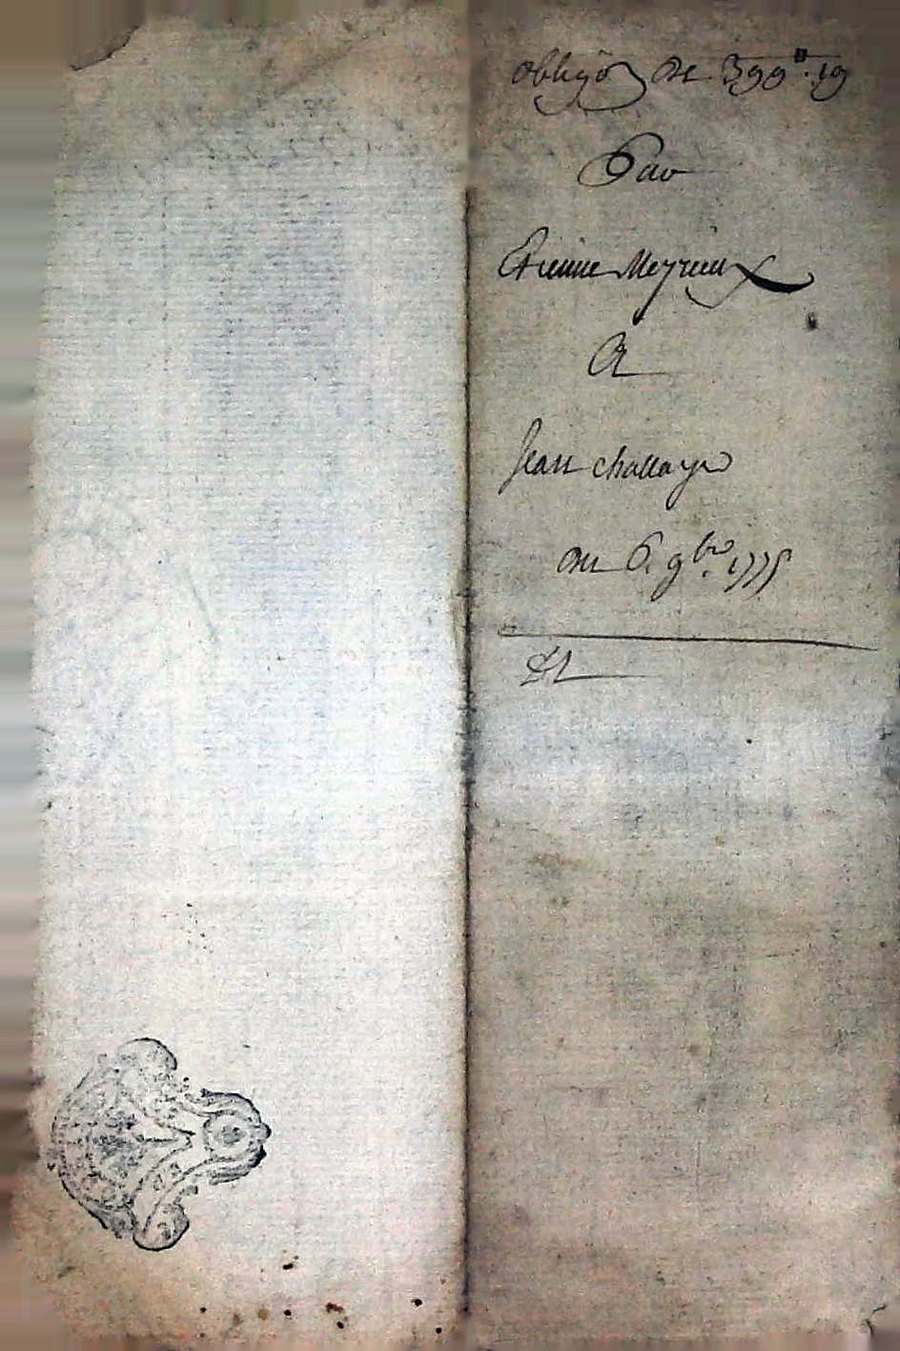 obligõn de 399ᵗᵗ. 19
Par
Etienne Meyrieux
A
Jean challaye
du 6. 9bre. 1775